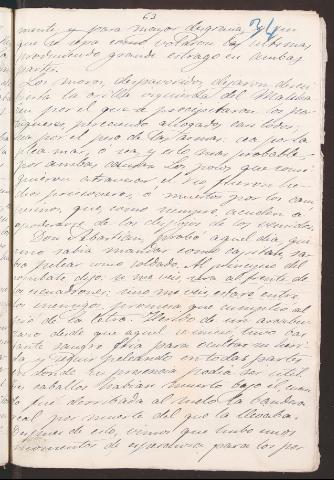 63
24
mente y para mayor desgracia, sin
que se sepa como volaron las ultimas
produciendo grande estrago en ambas
partes.
Los moros, despavoridos, dejaron de
la orilla izquierda del
por el que se precipitaron los
pereciendo ahogados casi todos,
por el peso de las armas, sea por la
marea, o sea y es lo mas probable,
por ambas causas. Los pocos que consi-
guieron atravesar el rio fueron he-
chos prisioneros, o muertos por los cam-
pesinos, que, como siempre, acuden a
apoderarse de los despojos de los vencidos.
Don Sebastian, probó aquel dia, que
sino sabia mandar como capitan, sa-
bia pelear como soldado. Al principio del
combate dijo: si me veis, será al frente de
los escuadrones; sino me veis, estaré entre
los enemigos, promesa que cumplió al
pié de la letra. Herido de un
desde que aquel comenzó, tuvo bas-
tante sangre fria para ocultar su heri-
da y seguir peleando en todas partes
en donde su presencia podia ser util.
caballos habian muerto bajo el, cuan-
do fué derribada al suelo la bandera
real por muerte del que la llevaba.
Despues de esto, vimos que hubo unos
momentos de esperanza para los por